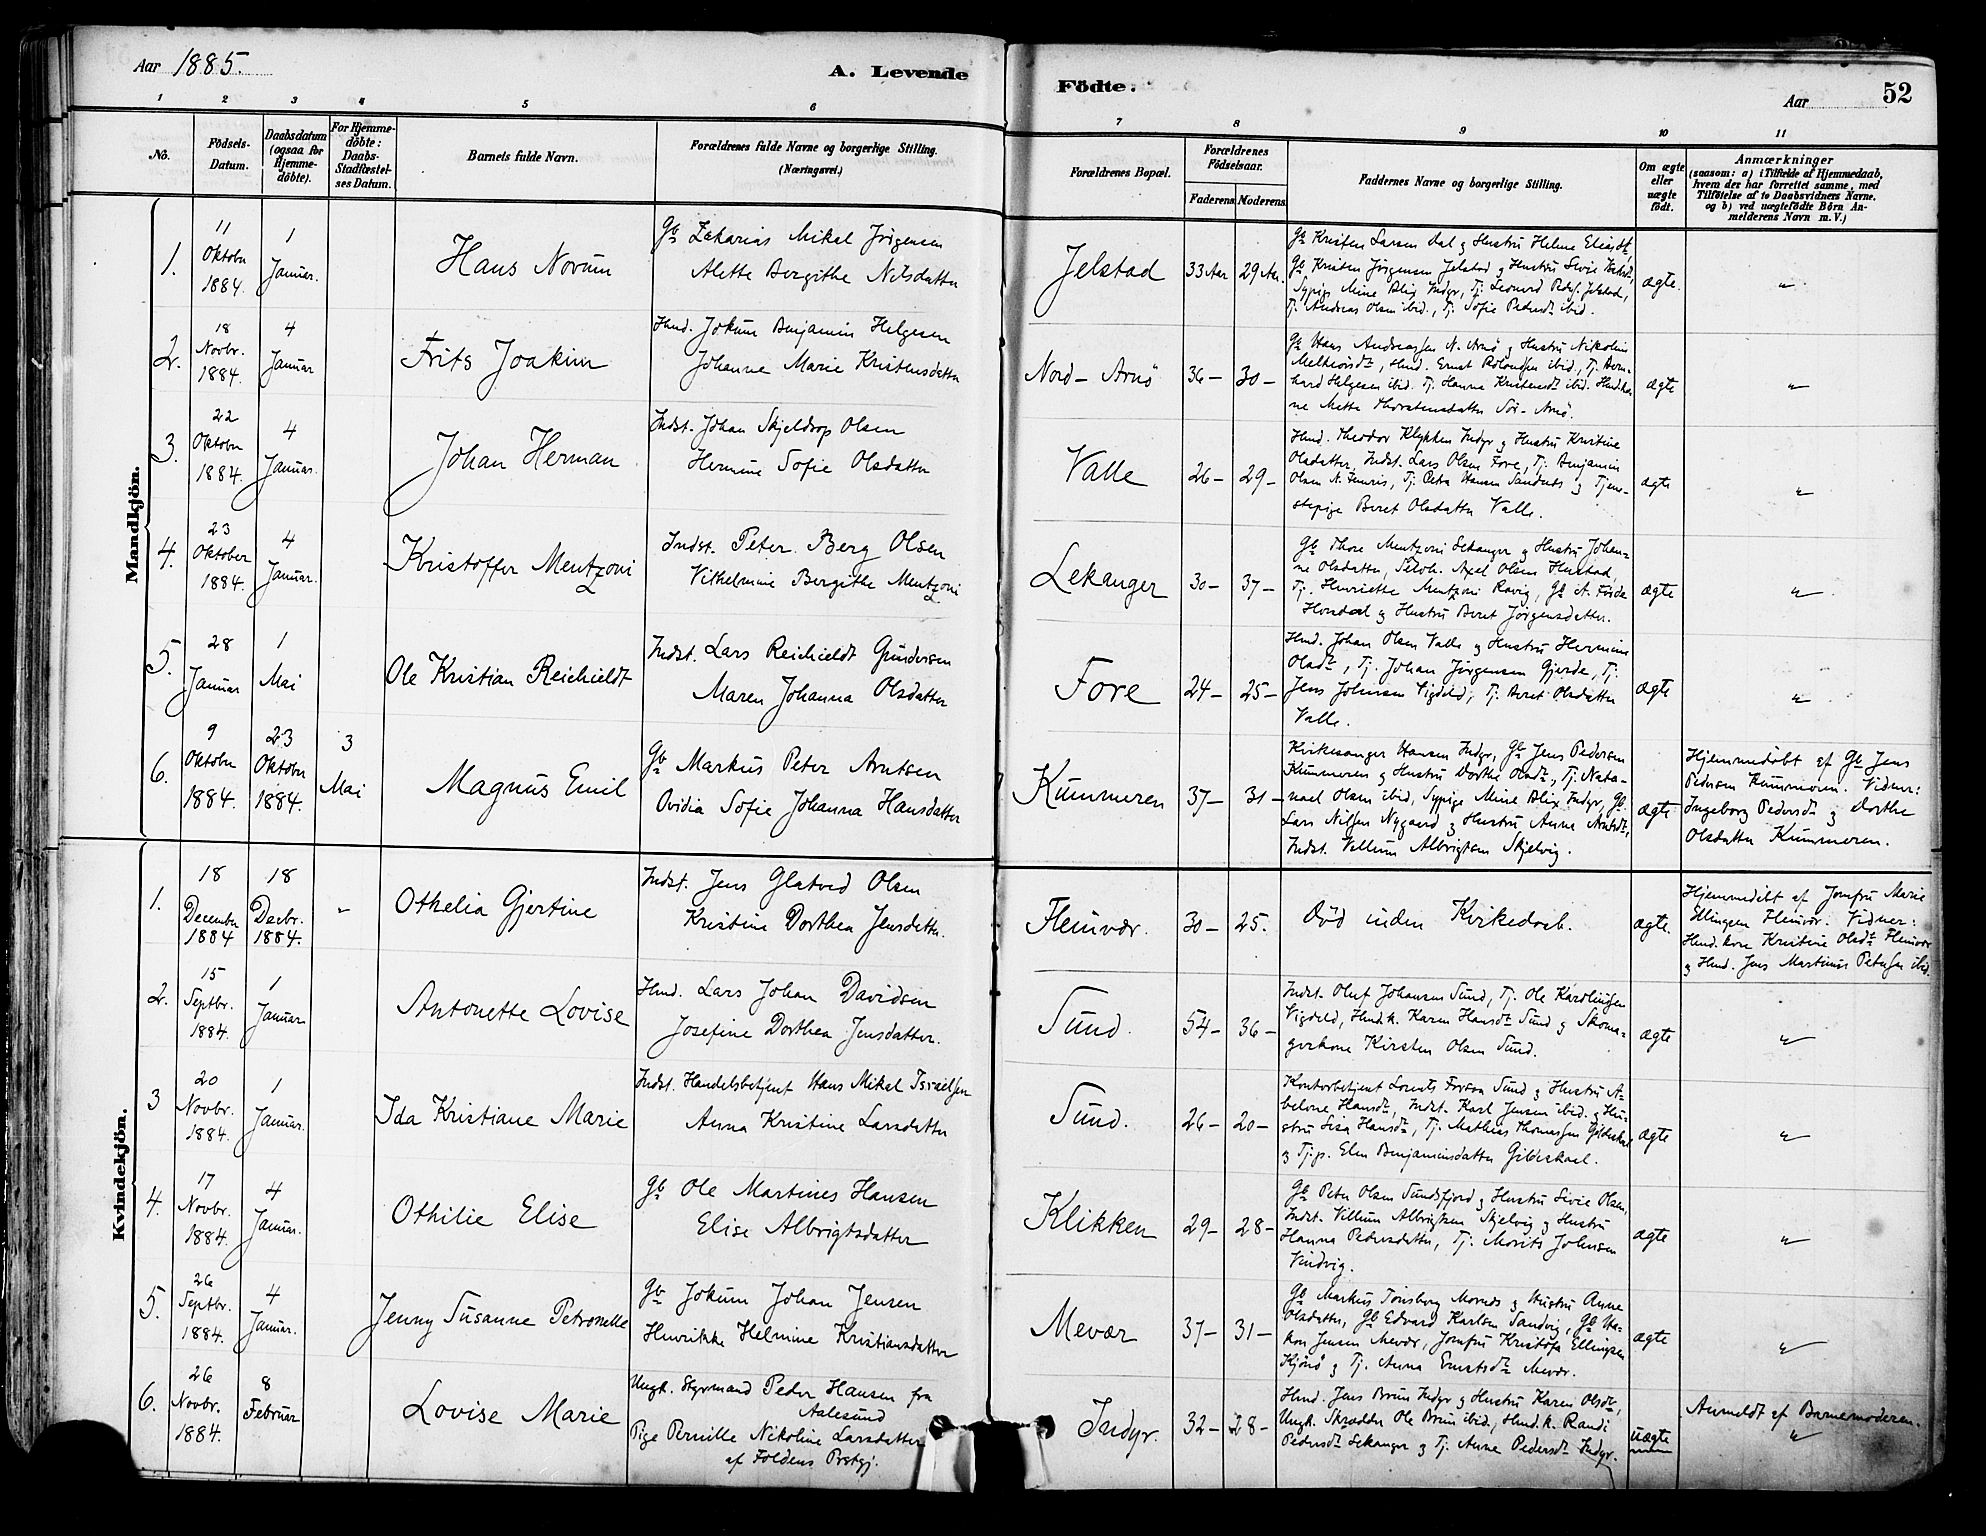 Aar 1885.
A. Levende
Födte.
Aar
52
1 2 3 4 5 6 7 8 9 10 11
No.
Födsels-Datum.
Daabsdatum (ogsaa for Hjemme-döbte).
For Hjemme-döbte: Daabs-Stadfæstel-ses Datum.
Barnets fulde Navn.
Forældrenes fulde Navne og borgerlige Stilling. (Næringsvei.)
Forældrenes Bopæl.
Forældrenes Födselsaar.
Faderens Moderens.
Faddernes Navne og borgerlige Stilling.
Om ægte eller uægte födt.
Anmærkninger
(saasom: a) i Tilfælde af Hjemmedaab,
hvem der har forrettet samme, med
Tilföielse af to Daabsvidners Navne,
og b) ved uægtefödte Börn An-
melderens Navn m. V.)
Mandkjön.
1.
11 Oktobr 1884.
1 Januar.
Hans Novum
Gb Zakarias Mikal Jørgensen
Alette Bergithe Nilsdatter
Jelstad
33 Aar 29 Aar.
Gb Kristen Larsen Dal og Hustru Helene Eliasdt,
Gb Kristen Jørgensen Jelstad og Hustru Sivie
Sypige Mine Blix Indyr, Tj. Leonard Peders. Jelstad,
Tj. Andreas Olsen ibid., Tj. Sofie Petersdt ibid.
ægte.
"
2.
18 Novbr. 1884.
4 Januar
Frits Joakim
Hmd. Jokum Benjamin Helgesen
Johanne Marie Kristensdatter
Nord-Arnø
36- 30-
Gb Hans Andreassen N. Arnø og Hustru Nikoline
Melkiorsdt, Hmd. Ernst Rolandsen ibid., Tj. Bern-
hard Helgesen ibid. Tj. Hanna Kristensdt ibid. Hmd.ko-
ne Mette Thorstensdatter Sör-Arnø.
ægte
"
3.
22 Oktobr 1884.
4 Januar.
Johan Herman
Indst. Johan Skjeldrop Olsen
Hermine Sofie Olsdatter
Valle
26- 29-
Hmd. Theodor Klykken Indyr og Hustru Kristine
Olsdatter, Indst. Lars Olsen Fore, Tj. Benjamin
Olsen N. Finnvis, Tj. Petra Hansen Sandnes og Tjene-
stepige Beret Olsdatter Valle.
ægte
"
4.
23 Oktober 1884.
4 Januar.
Kristoffer Mentzoni
Indst. Peter Berg Olsen
Vilhelmine Bergithe Mentzoni
Lekanger
30- 37-
Gb Thore Mentzoni Lekanger og Hustru Johan-
ne Olsdatter, Selvh. Axel Olsen Hustad,
Tj. Henriette Mentzoni Ravig, Gb A. Förde
Horsdal og Hustru Beret Jørgensdatter.
ægte
"
5.
28 Januar
1 Mai
Ole Kristian Reichieldt
Indst. Lars Reichieldt Gundersen
Maren Johanna Olsdatter
Fore
24- 25-
Hmd. Johan Olsen Valle og Hustru Hermine
Olsdt, Tj. Johan Jørgensen Gjerde, Tj.
Jens Johnsen Vigdeld, Tj. Beret Olsdatter
Valle.
ægte
"
6.
9 Oktobr 1884.
23 Oktobr 1884.
3 Mai
Magnus Emil
Gb Markus Peter Arntsen
Ovidia Sofie Johanna Hansdatter
Kummeren
37- 31-
Kirkesanger Hansen Indyr, Gb Jens Pedersen
Kummeren og Hustru Dorthe Olsdt, Tj. Nata-
nael Olsen ibid, Sypige Mine Blix Indyr, Gb
Lars Nilsen Nygaard og Hustru Anne Arntsdt,
Indst. Vellum Albrigtsen Skjelvig.
ægte
Hjemmedøbt af Gb Jens
Pedersen Kummeren. Vidner:
Ingeborg Pedersdt og Dorthe
Olsdatter Kummeren.
Kvindekjön.
1.
18 Decembr 1884
18 Decbr. 1884.
"
Othelia Gjertine
Indst. Jens Glatved Olsen
Kristine Dorthea Jensdatter.
Fleinvær.
30- 25.
Død uden Kirkedaab.
ægte.
Hjemmedøbt af Jomfru Marie
Ellingsen Fleinvær. Vidner:
Hmd.kone Kristine Olsdt Fleinvær
og Hmd. Jens Martinus Petersen ibid.
2.
15 Septbr. 1884.
1 Januar
Antonette Lovise
Hmd. Lars Johan Davidsen
Josefine Dorthea Jensdatter.
Sund.
54- 36-
Indst. Oluf Johansen Sund, Tj. Ole Karolinsen
Vigdeld, Hmd.k. Karen Hansdt Sund og Skoma-
gerkone Kirsten Olsen Sund.
ægte
"
3
20 Novbr. 1884.
1 Januar.
Ida Kristiane Marie
Indst. Handelsbetjent Hans Mikal Israelsen
Anna Kristine Larsdatter
Sund.
26- 20-
Kontorbetjent Lorents Forsaa Sund og Hustru A-
belone Hansdt, Indst. Karl Jensen ibid. og Hu-
stru Lisa Hansdt, Tj. Mathias Thomassen Gildeskaal
og Tj.p. Elen Benjaminsdatter Gildeskaal.
ægte
"
4.
17 Novbr. 1884.
4 Januar.
Othilie Elise
Gb Ole Martines Hansen
Elise Albrigtsdatter
Klikken
29- 28-
Gb Peter Olsen Sundsfjord og Hustru Sivie Olsen,
Indst. Villum Albrigtsen Skjelvig og Hustru
Hanna Pedersdatter, Tj. Morits Johnsen
Vindvig.
ægte
"
5.
26 Septbr. 1884.
4 Januar.
Jenny Susanne Petronelle
Gb Jokum Johan Jensen
Henrikke Helmine Kristiansdatter
Mevær
37- 31-
Gb Markus Tønsberg Mornes og Hustru Anne
Olsdatter, Gb Edvard Karlsen Sandvig, Gb Ha-
kon Jensen Mevær, Jomfru Kristofa Ellingsen
Kjönø og Tj. Anna Ernstsdt Mevær.
ægte
"
6.
26 Novbr. 1884.
8 Februar
Lovise Marie
Ungk. Styrmand Peder Hansen fra
Aalesund
Pige Pernille Nikoline Larsdatter
af Foldens Prstgj.
Indyr.
32- 28-
Hmd. Jens Bruun Indyr og Hustru Karen Olsdt,
Ungk. Skrædder Ole Bruun ibid., Hmd.k. Randi
Pedersdt Lekanger og Tj. Anne Pedersdt Indyr.
uægte
Anmeldt af Barnemoderen.
"